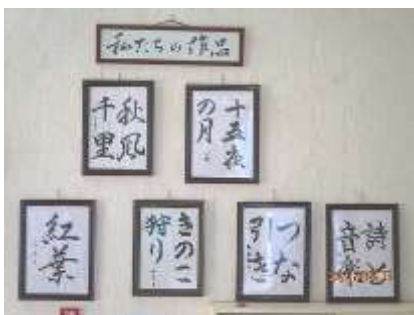 私たちの作品
秋風
千里
十五夜
の月
紅葉
きのこ
狩り
つな
引き
詩と
音楽